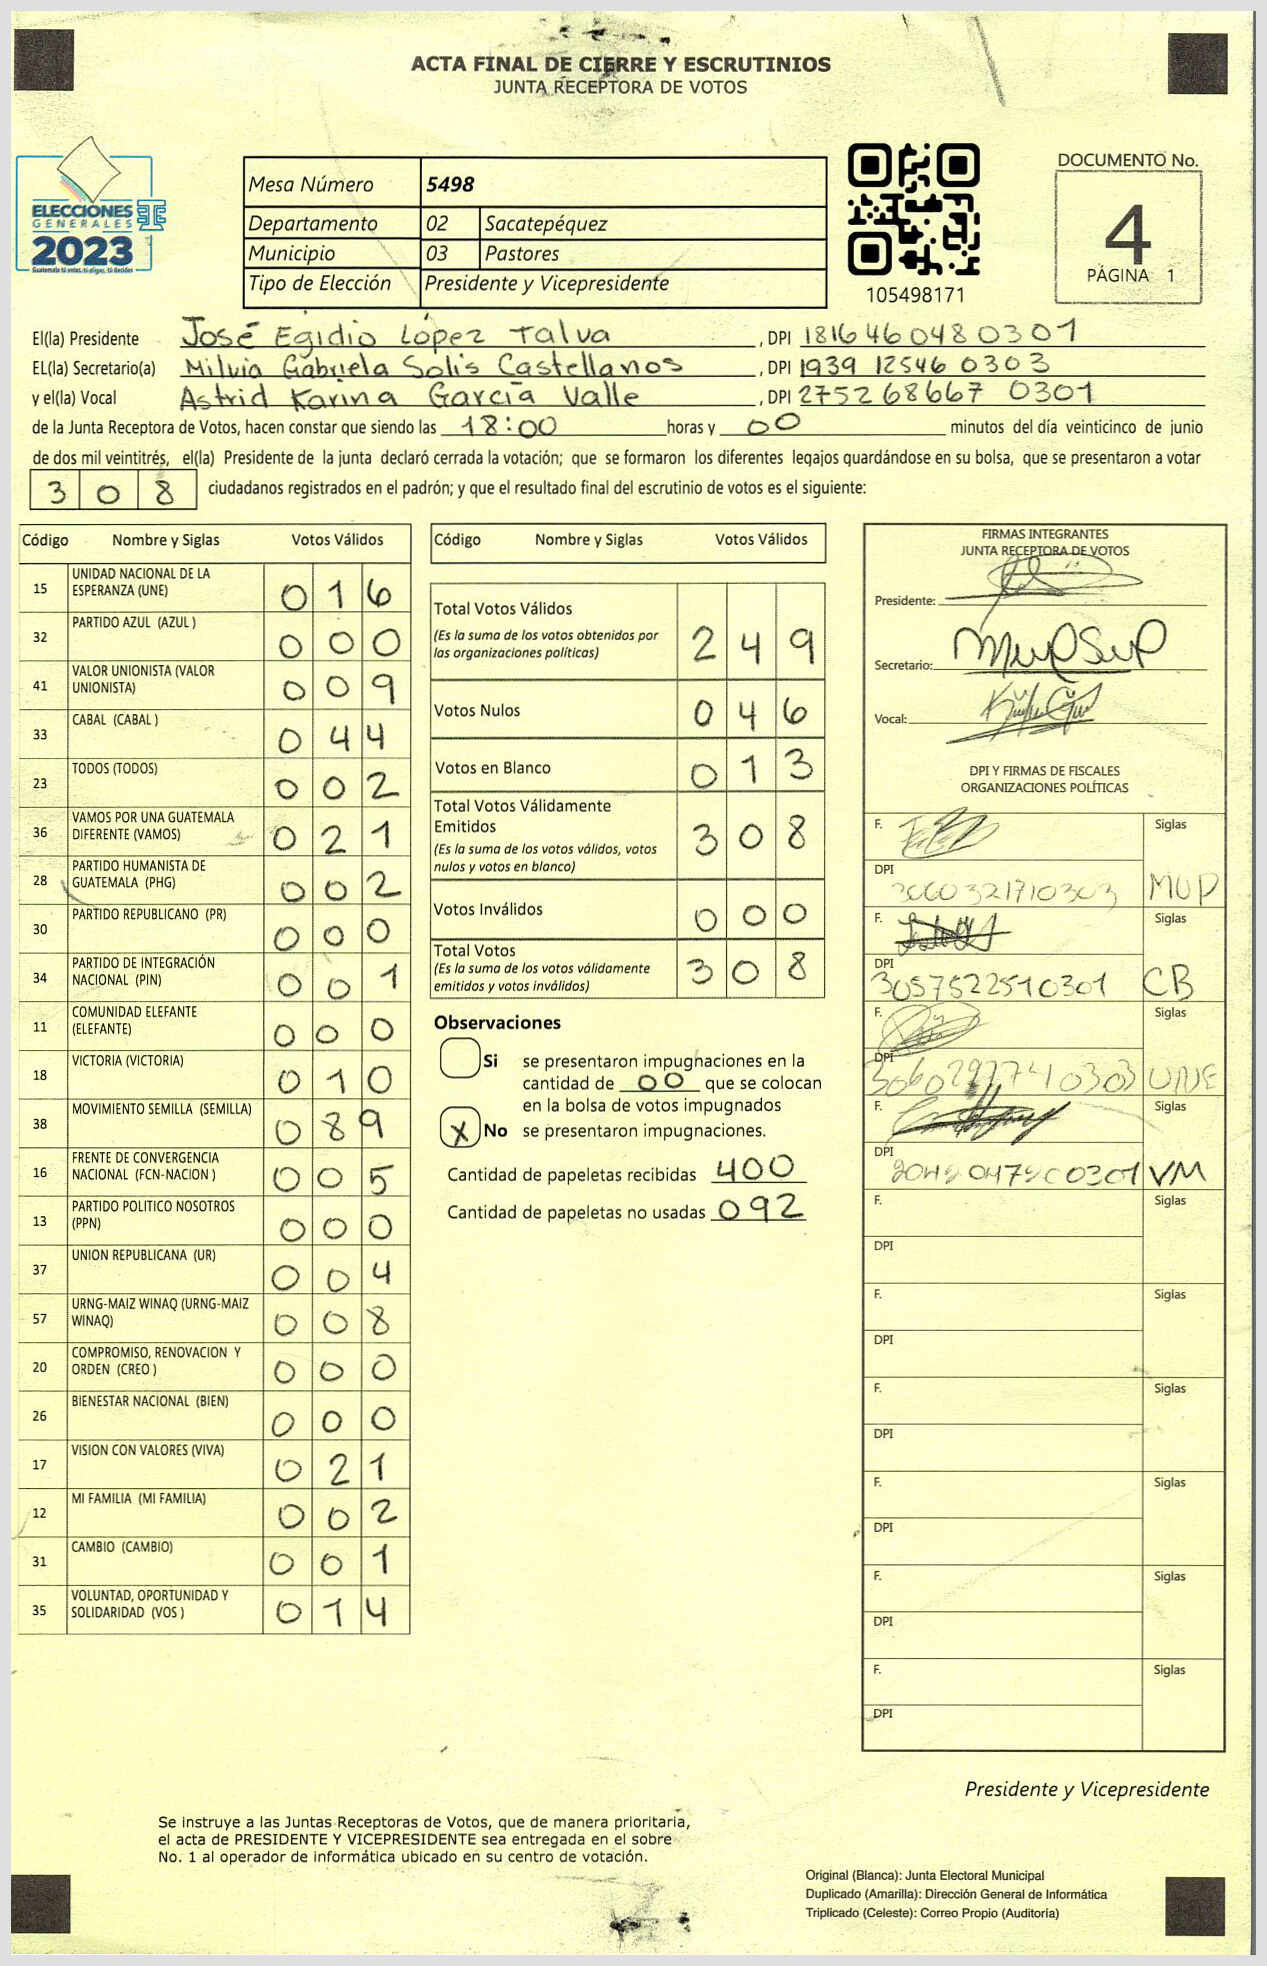 ACTA FINAL DE CIERRE Y ESCRUTINIOS
JUNTA RECEPTORA DE VOTOS
ELECCIONES
GENERALES
2023
Guatemala tú votas, tú eliges, tú decides
Mesa Número 5498
Departamento 02 Sacatepéquez
Municipio 03 Pastores
Tipo de Elección Presidente y Vicepresidente
105498171
DOCUMENTO No.
4
PÁGINA 1
El(la) Presidente José Egidio López Talva, DPI 1816460480301
EL(la) Secretario(a) Milvia Gabriela Solis Castellanos, DPI 1939 12546 0303
y el(la) Vocal Astrid Karina García Valle, DPI 275268667 0301
de la Junta Receptora de Votos, hacen constar que siendo las 18:00 horas y 00 minutos del día veinticinco de junio
de dos mil veintitrés, el(la) Presidente de la junta declaró cerrada la votación; que se formaron los diferentes legajos guardándose en su bolsa, que se presentaron a votar
308 ciudadanos registrados en el padrón; y que el resultado final del escrutinio de votos es el siguiente:
Código Nombre y Siglas Votos Válidos
15 UNIDAD NACIONAL DE LA ESPERANZA (UNE) 016
32 PARTIDO AZUL (AZUL ) 000
41 VALOR UNIONISTA (VALOR UNIONISTA) 009
33 CABAL (CABAL ) 044
23 TODOS (TODOS) 002
36 VAMOS POR UNA GUATEMALA DIFERENTE (VAMOS) 021
28 PARTIDO HUMANISTA DE GUATEMALA (PHG) 002
30 PARTIDO REPUBLICANO (PR) 000
34 PARTIDO DE INTEGRACIÓN NACIONAL (PIN) 001
11 COMUNIDAD ELEFANTE (ELEFANTE) 000
18 VICTORIA (VICTORIA) 010
38 MOVIMIENTO SEMILLA (SEMILLA) 089
16 FRENTE DE CONVERGENCIA NACIONAL (FCN-NACION ) 005
13 PARTIDO POLITICO NOSOTROS (PPN) 000
37 UNION REPUBLICANA (UR) 004
57 URNG-MAIZ WINAQ (URNG-MAIZ WINAQ) 008
20 COMPROMISO, RENOVACION Y ORDEN (CREO ) 000
26 BIENESTAR NACIONAL (BIEN) 000
17 VISION CON VALORES (VIVA) 021
12 MI FAMILIA (MI FAMILIA) 002
31 CAMBIO (CAMBIO) 001
35 VOLUNTAD, OPORTUNIDAD Y SOLIDARIDAD (VOS ) 014
Código Nombre y Siglas Votos Válidos
Total Votos Válidos 249
(Es la suma de los votos obtenidos por
las organizaciones políticas)
Votos Nulos 046
Votos en Blanco 013
Total Votos Válidamente
Emitidos 308
(Es la suma de los votos válidos, votos
nulos y votos en blanco)
Votos Inválidos 000
Total Votos 308
(Es la suma de los votos válidamente
emitidos y votos inválidos)
Observaciones
Si se presentaron impugnaciones en la
cantidad de 00 que se colocan
en la bolsa de votos impugnados
X No se presentaron impugnaciones.
Cantidad de papeletas recibidas 400
Cantidad de papeletas no usadas 092
FIRMAS INTEGRANTES
JUNTA RECEPTORA DE VOTOS
Presidente:
Secretario:
Vocal:
DPI Y FIRMAS DE FISCALES
ORGANIZACIONES POLÍTICAS
F. Siglas
DPI 3060321710303 MUP
F. Siglas
DPI 3057522510301 CB
F. Siglas
DPI UNE
F. Siglas
DPI VM
F. Siglas
DPI
F. Siglas
DPI
F. Siglas
DPI
F. Siglas
DPI
F. Siglas
DPI
F. Siglas
DPI
Presidente y Vicepresidente
Se instruye a las Juntas Receptoras de Votos, que de manera prioritaria,
el acta de PRESIDENTE Y VICEPRESIDENTE sea entregada en el sobre
No. 1 al operador de informática ubicado en su centro de votación.
Original (Blanca): Junta Electoral Municipal
Duplicado (Amarilla): Dirección General de Informática
Triplicado (Celeste): Correo Propio (Auditoría)